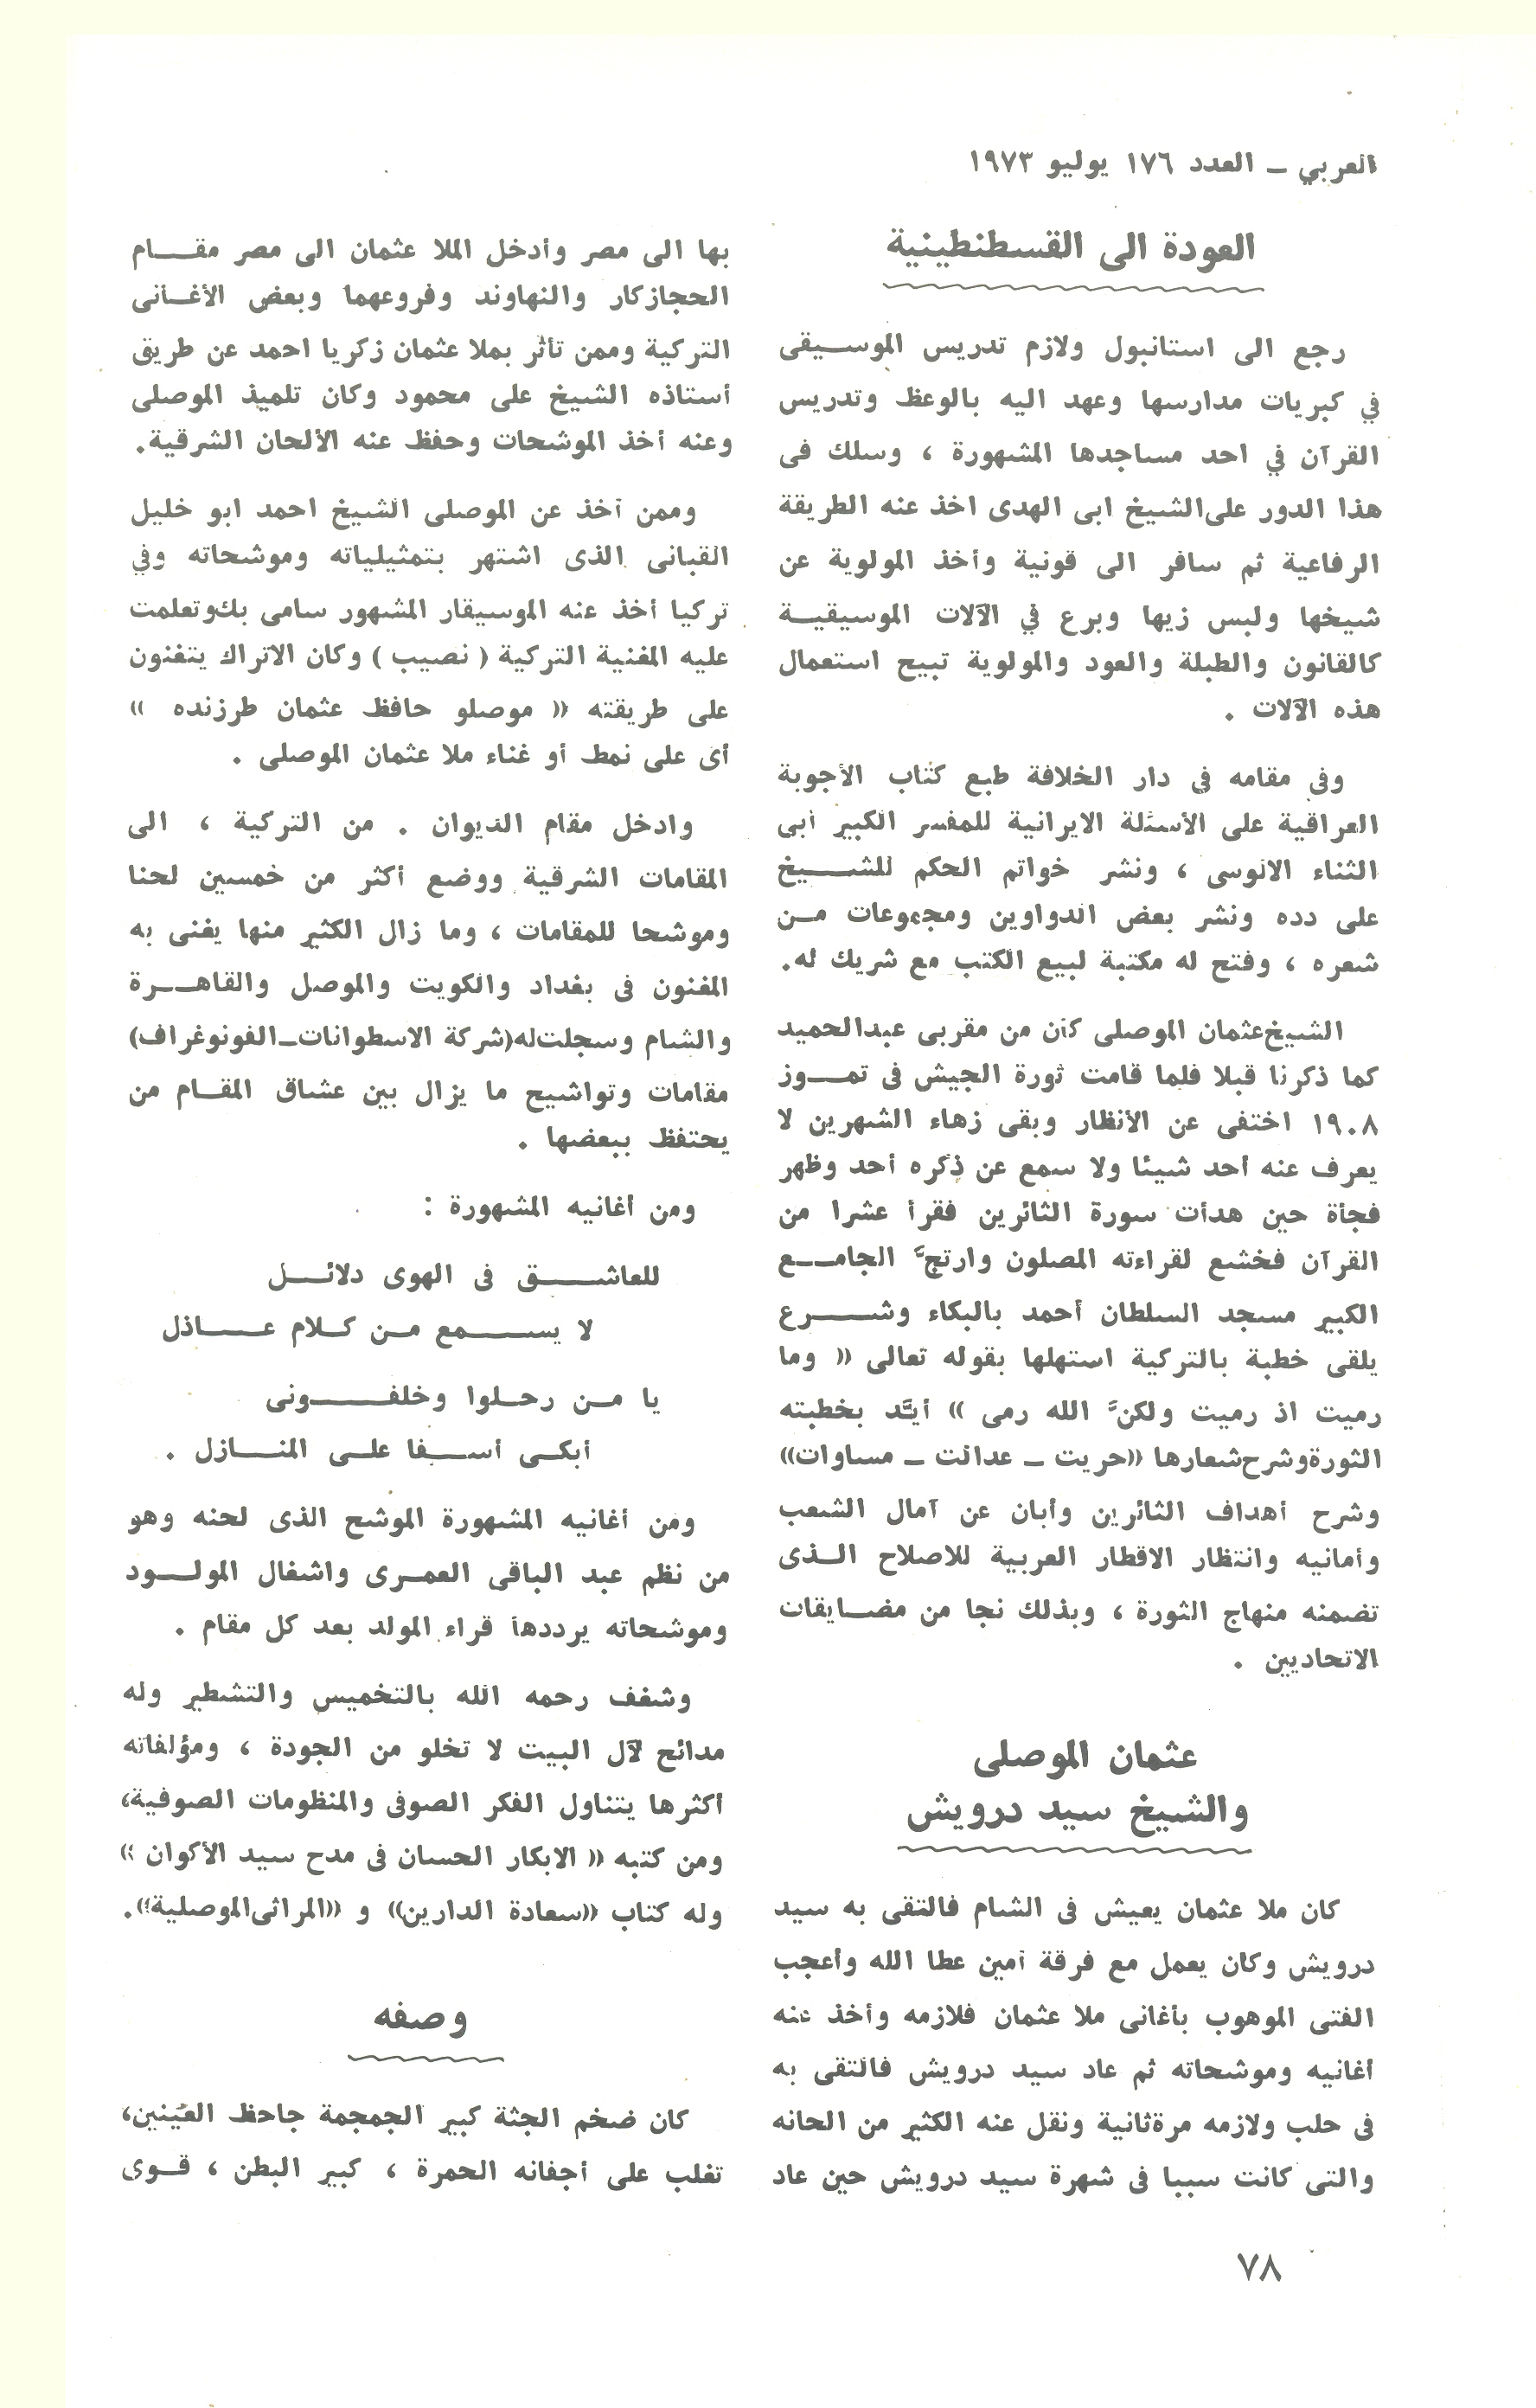 العربي – العدد ١٧٦ يوليو ١٩٧٣
العودة الى القسطنطينية
رجع الى استانبول ولازم تدريس الموسيقى
في كبريات مدارسها وعهد اليه بالوعظ وتدريس
القرآن في احد مساجدها المشهورة ، وسلك فى
هذا الدور على الشيخ ابى الهدى اخذ عنه الطريقة
الرفاعية ثم سافر الى قونية وأخذ المولوية عن
شيخها ولبس زيها وبرع في الآلات الموسيقية
كالقانون والطبلة والعود والمولوية تبيح استعمال
هذه الآلات .
وفي مقامه في دار الخلافة طبع كتاب الأجوبة
العراقية على الأسئلة الايرانية للمفسر الكبير أبى
الثناء الالوسى ، ونشر خواتم الحكم للشيخ
على دده ونشر بعض الدواوين ومجموعات من
شعره ، وفتح له مكتبة لبيع الكتب مع شريك له.
الشيخ عثمان الموصلى كان من مقربى عبدالحميد
كما ذكرنا قبلا فلما قامت ثورة الجيش فى تموز
١٩٠٨ اختفى عن الأنظار وبقى زهاء الشهرين لا
يعرف عنه أحد شيئا ولا سمع عن ذكره أحد وظهر
فجأة حين هدأت سورة الثائرين فقرأ عشرا من
القرآن فخشع لقراءته المصلون وارتجَّ الجامع
الكبير مسجد السلطان أحمد بالبكاء وشرع
يلقى خطبة بالتركية استهلها بقوله تعالى « وما
رميت اذ رميت ولكنَّ الله رمى » أيَّد بخطبته
الثورة وشرح شعارها «حريت – عدالت – مساوات»
وشرح أهداف الثائرين وأبان عن آمال الشعب
وأمانيه وانتظار الاقطار العربية للاصلاح الذى
تضمنه منهاج الثورة ، وبذلك نجا من مضايقات
الاتحاديين .
عثمان الموصلى
والشيخ سيد درويش
كان ملا عثمان يعيش فى الشام فالتقى به سيد
درويش وكان يعمل مع فرقة أمين عطا الله وأعجب
الفتى الموهوب بأغانى ملا عثمان فلازمه وأخذ عنه
أغانيه وموشحاته ثم عاد سيد درويش فالتقى به
فى حلب ولازمه مرة ثانية ونقل عنه الكثير من الحانه
والتى كانت سببا فى شهرة سيد درويش حين عاد
بها الى مصر وأدخل الملا عثمان الى مصر مقام
الحجازكار والنهاوند وفروعهما وبعض الأغانى
التركية وممن تأثر بملا عثمان زكريا احمد عن طريق
أستاذه الشيخ على محمود وكان تلميذ الموصلى
وعنه أخذ الموشحات وحفظ عنه الألحان الشرقية.
وممن آخذ عن الموصلى الشيخ احمد ابو خليل
القبانى الذى اشتهر بتمثيلياته وموشحاته وفي
تركيا أخذ عنه الموسيقار المشهور سامى بك وتعلمت
عليه المغنية التركية ( نصيب ) وكان الاتراك يتغنون
على طريقته « موصلو حافظ عثمان طرزنده »
أى على نمط أو غناء ملا عثمان الموصلى .
وادخل مقام الديوان . من التركية ، الى
المقامات الشرقية ووضع أكثر من خمسين لحنا
وموشحا للمقامات ، وما زال الكثير منها يغنى به
المغنون فى بغداد والكويت والموصل والقاهرة
والشام وسجلت له (شركة الاسطوانات–الفونوغراف)
مقامات وتواشيح ما يزال بين عشاق المقام من
يحتفظ ببعضها .
ومن أغانيه المشهورة :
للعاشق فى الهوى دلائل
لا يسمع من كلام عاذل
يا من رحلوا وخلفونى
أبكى أسفا على المنازل .
ومن أغانيه المشهورة الموشح الذى لحنه وهو
من نظم عبد الباقى العمرى واشغال المولود
وموشحاته يرددها قراء المولد بعد كل مقام .
وشغف رحمه الله بالتخميس والتشطير وله
مدائح لآل البيت لا تخلو من الجودة ، ومؤلفاته
أكثرها يتناول الفكر الصوفى والمنظومات الصوفية،
ومن كتبه « الابكار الحسان فى مدح سيد الأكوان »
وله كتاب «سعادة الدارين» و «المراثى الموصلية».
وصفه
كان ضخم الجثة كبير الجمجمة جاحظ العينين،
تغلب على أجفانه الحمرة ، كبير البطن ، قوى
٧٨